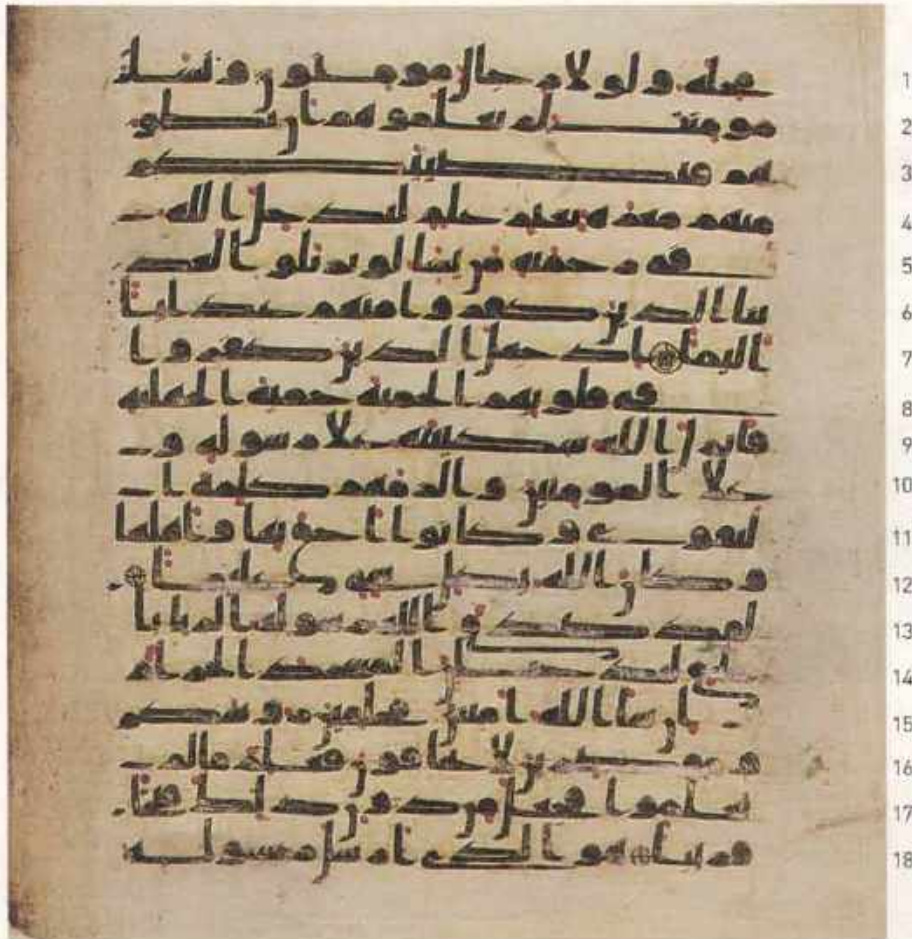 1 محله ولولا رجال مومنون ونسا
2 مومنت لم تعلموهم ان تطو
3 هم فتصيبكم
4 منهم معرة بغير علم ليدخل الله
5 في رحمته من يشا لو تزيلوا لعذ
6 بنا الذين كفروا منهم عذابا
7 اليما اذ جعل الذين كفروا
8 في قلوبهم الحمية حمية الجهلية
9 فانزل الله سكينته على رسوله و
10 على المومنين والزمهم كلمة ا
11 لتقوى وكانوا احق بها واهلها
12 وكان الله بكل شي عليما
13 لقد صدق الله رسوله الريا با
14 لحق لتدخلن المسجد الحرام
15 ان شا الله امنين محلقين روسكم
16 ومقصرين لا تخافون فعلم ما لم
17 تعلموا فجعل من دون ذلك فتحا
18 قريبا هو الذي ارسل رسوله